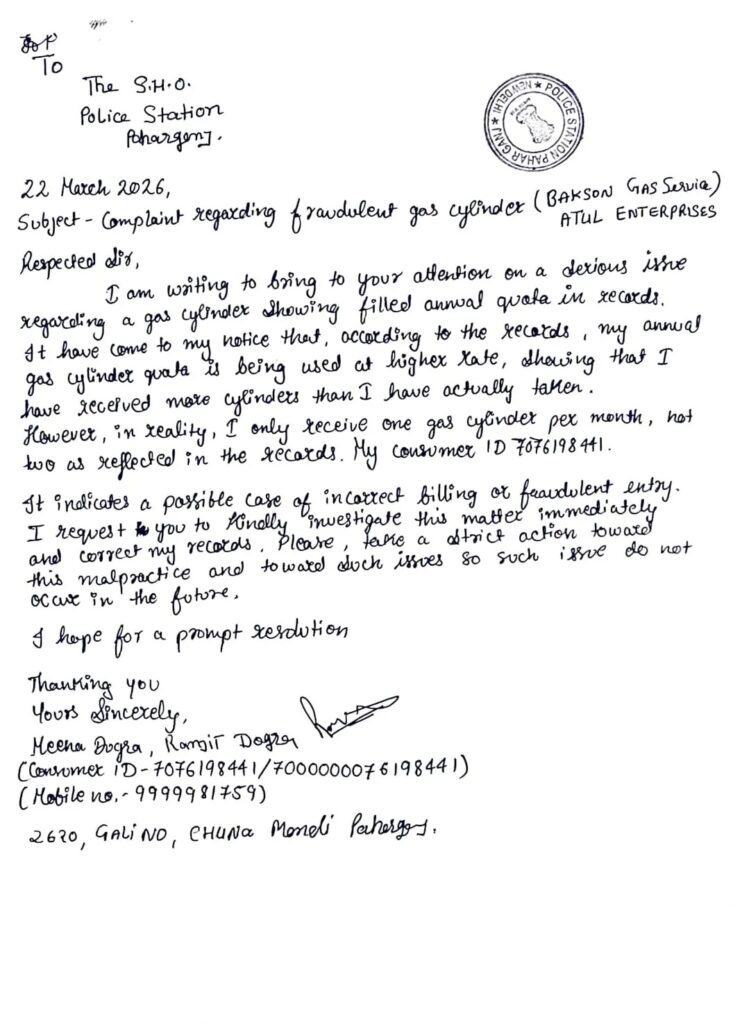 To
The S.H.O.
Police Station
Paharganj.
POLICE STATION PAHAR GANJ ★ NEW DELHI ★
22 March 2026,
Subject - Complaint regarding fraudulent gas cylinder (BAKSON GAS Service)
ATUL ENTERPRISES
Respected Sir,
I am writing to bring to your attention on a serious issue
regarding a gas cylinder showing filled annual quota in records.
It have come to my notice that, according to the records, my annual
gas cylinder quota is being used at higher rate, showing that I
have received more cylinders than I have actually taken.
However, in reality, I only receive one gas cylinder per month, not
two as reflected in the records. My consumer ID 7076198441.
It indicates a possible case of incorrect billing or fraudulent entry.
I request you to kindly investigate this matter immediately
and correct my records. Please, take a strict action toward
this malpractice and toward such issues so such issue do not
occur in the future.
I hope for a prompt resolution
Thanking you
Yours Sincerely,
Meena Dogra, Ramjit Dogra
(Consumer ID - 7076198441/7000000076198441)
(Mobile no. - 9999981759)
2620, GALI NO, CHUNA Mandi Paharganj.